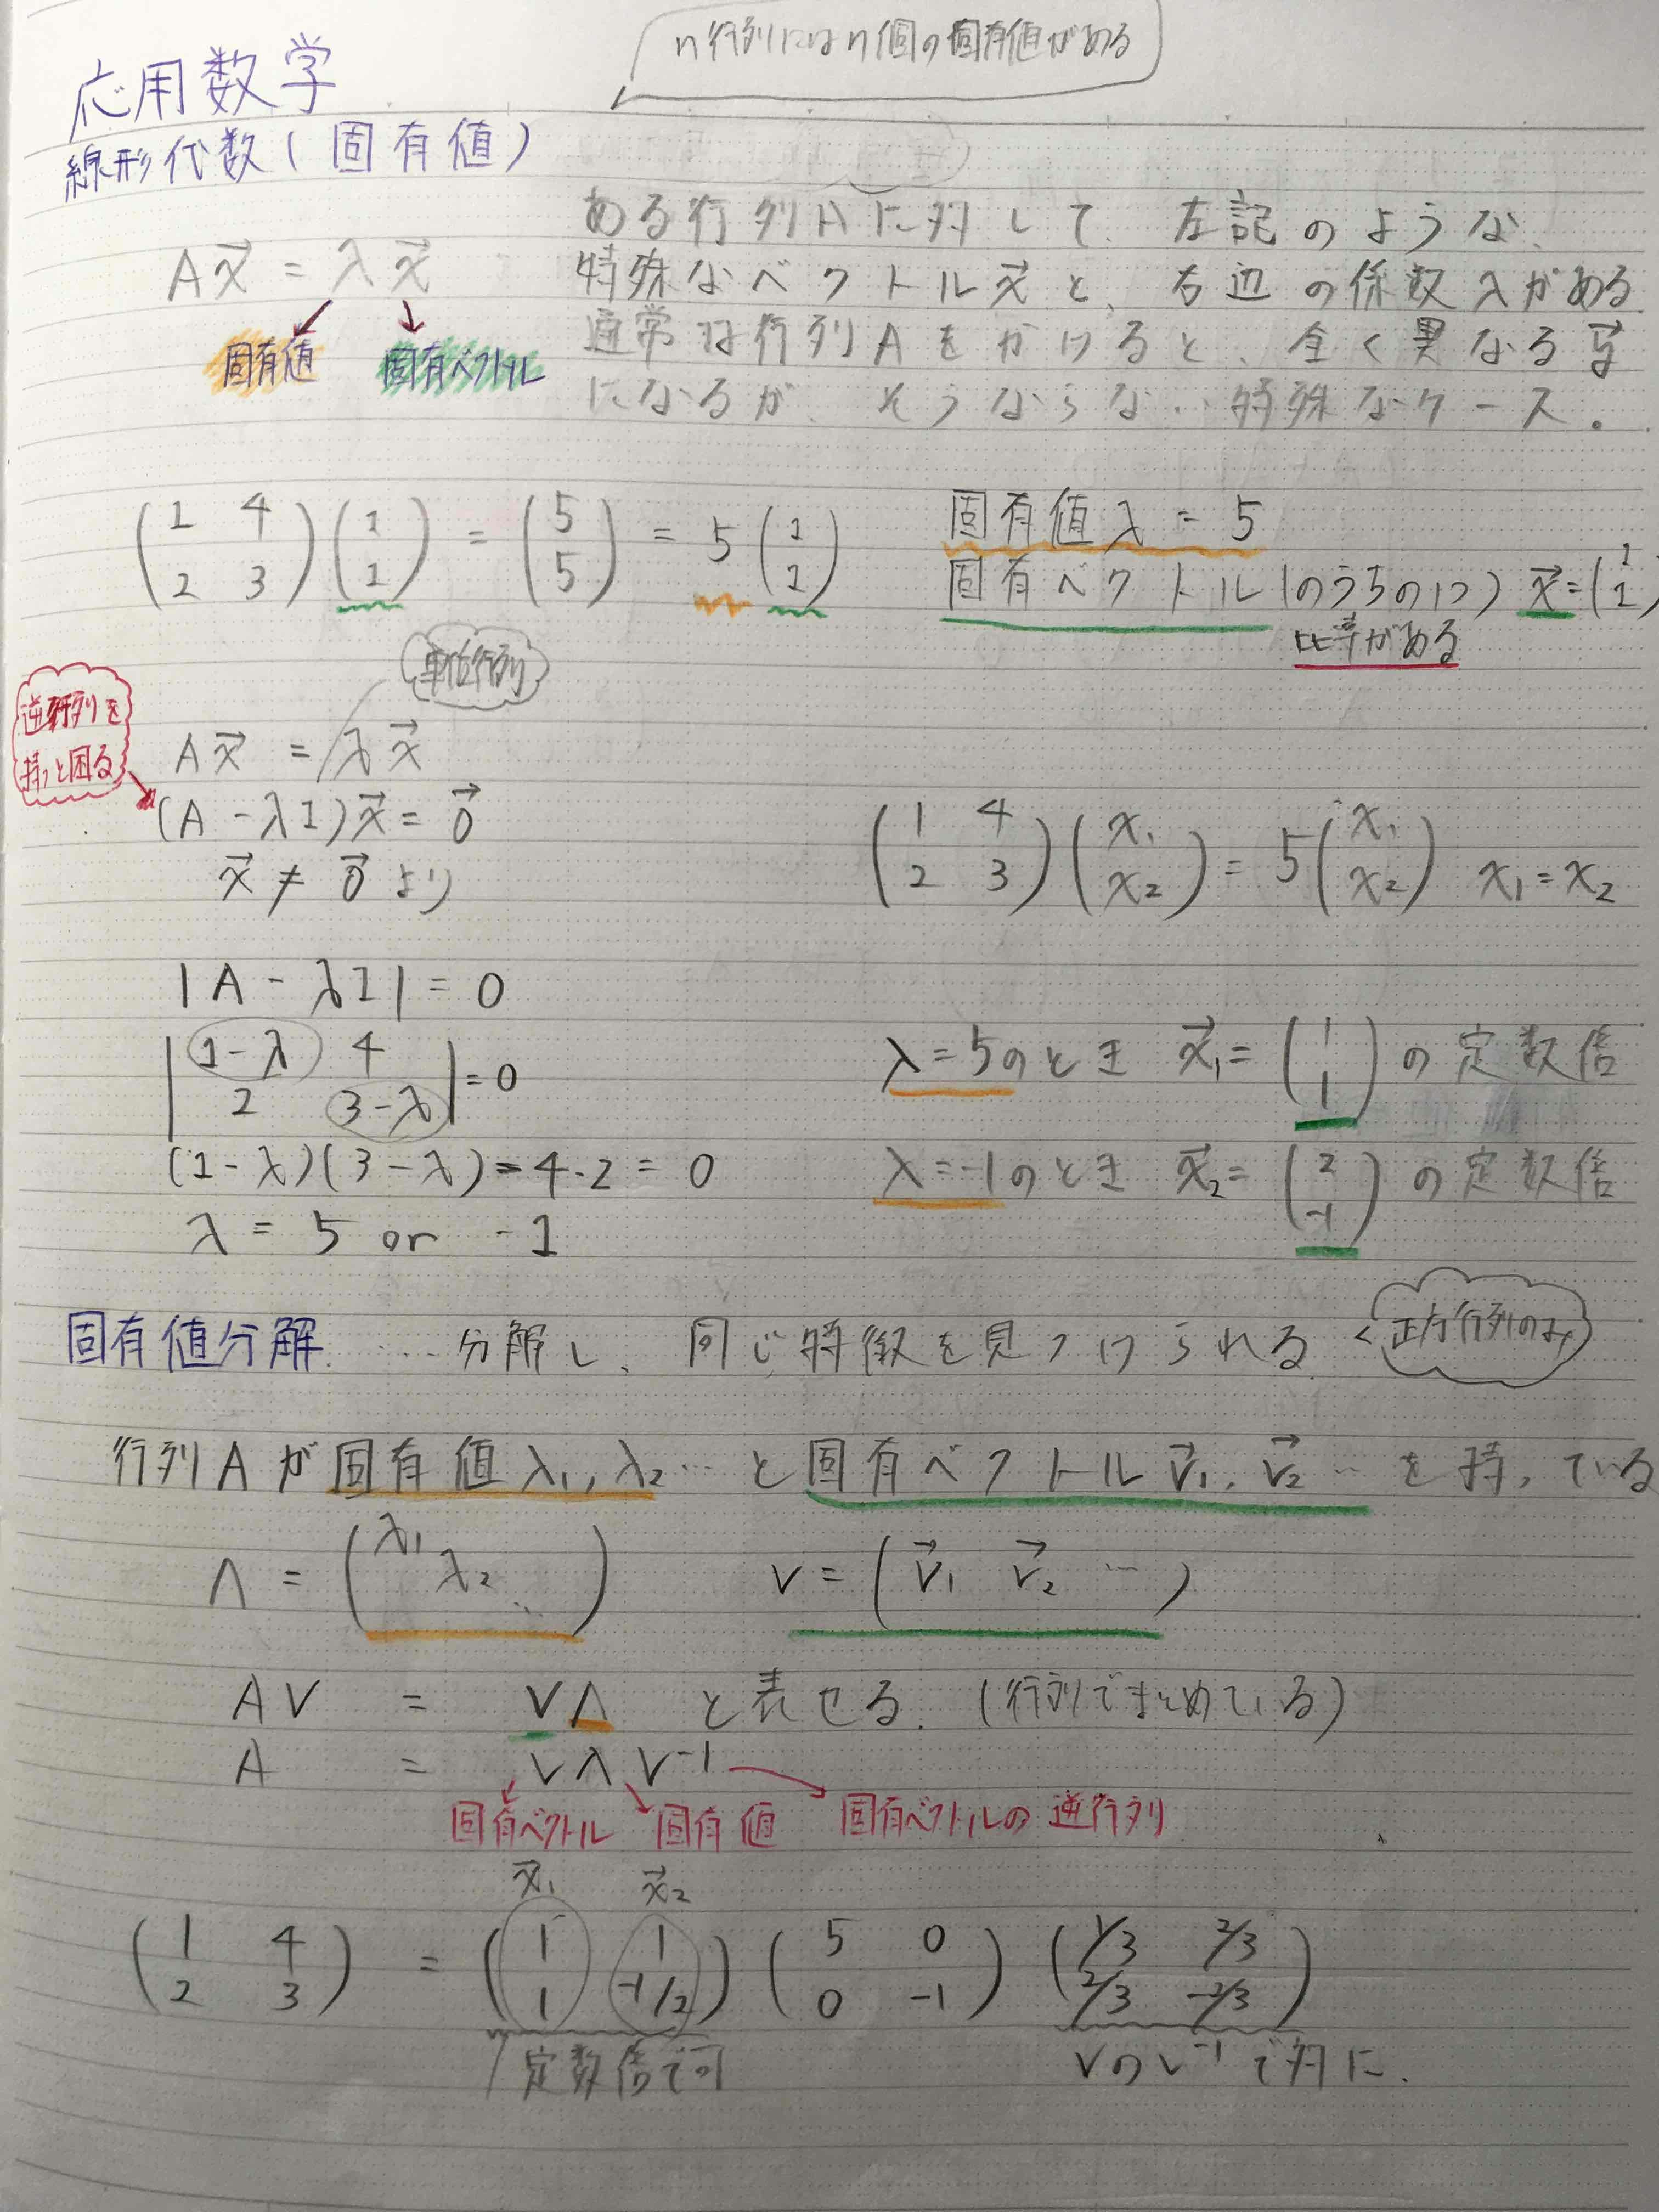 n行列にはn個の固有値がある
応用数学
線形代数(固有値)
Ax⃗ = λx⃗
固有値 固有ベクトル
ある行列Aに対して、左記のような、
特殊なベクトルx⃗と、右辺の係数λがある
通常は行列Aをかけると、全く異なる写
になるが、そうならない特殊なケース。
(1 4 / 2 3)(1 / 1) = (5 / 5) = 5(1 / 1)
固有値λ = 5
固有ベクトル(のうちの1つ) x⃗=(1 / 1)
比率がある
単位行列
逆行列を
持つと困る
Ax⃗ = λx⃗
(A - λI)x⃗ = 0⃗
x⃗ ≠ 0⃗ より
|A - λI| = 0
|1-λ 4 / 2 3-λ| = 0
(1-λ)(3-λ)-4・2 = 0
λ = 5 or -1
(1 4 / 2 3)(x₁ / x₂) = 5(x₁ / x₂) x₁=x₂
λ=5のとき x⃗₁= (1 / 1) の定数倍
λ=-1のとき x⃗₂= (2 / -1) の定数倍
固有値分解 ‥‥ 分解し、同じ特徴を見つけられる < 正方行列のみ
行列Aが固有値λ₁, λ₂… と固有ベクトルv⃗₁, v⃗₂ … を持っている
Λ = (λ₁ λ₂ ⋱) V = (v⃗₁ v⃗₂ …)
AV = VΛ と表せる. (行列でまとめている)
A = VΛV⁻¹
固有ベクトル 固有値 固有ベクトルの逆行列
x⃗₁ x⃗₂
(1 4 / 2 3) = (1 1 / 1 -1/2) (5 0 / 0 -1) (1/3 2/3 / 2/3 -2/3)
定数倍で可 VのV⁻¹で対に.